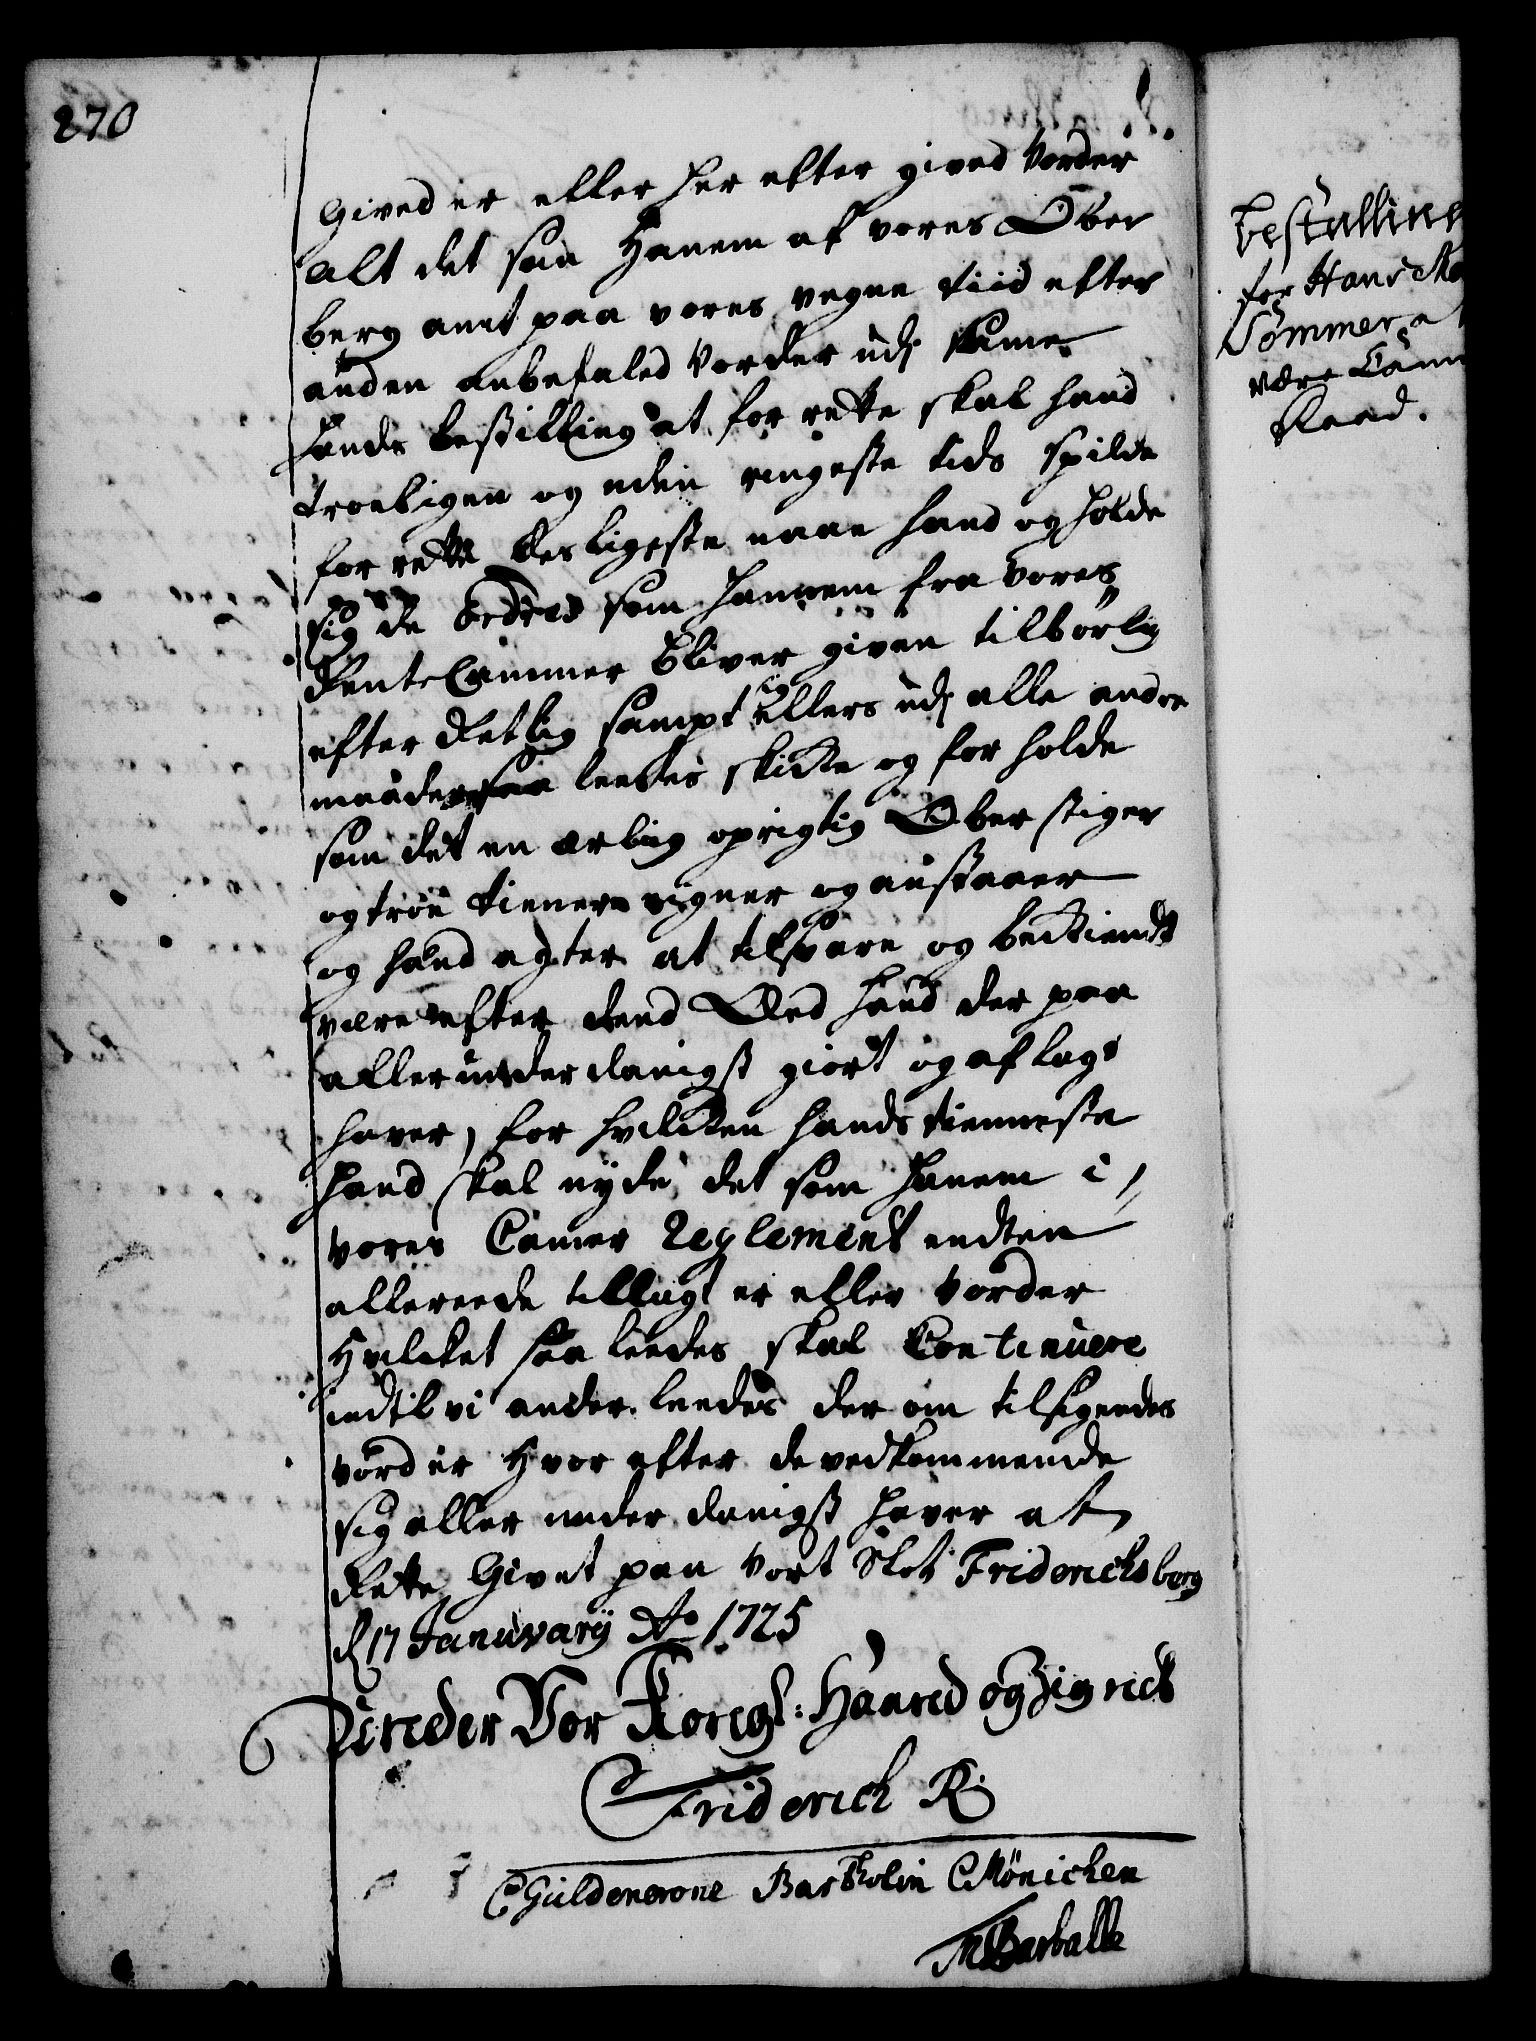 270
Gived er eller her efter gived vorder
alt det saa Hanem af vores Ober
berg amt paa vores vegne tiid efter
anden anbefaled vorder udj same
hands bestilling at for rette skal hand
troeligen og uden ringeste tids spilde
for rette desligeste naar hand og holde
sig de ordres som hannem fra vores
RenteCammer bliver given tilbørlig
efter rettlig sampt ellers udj alle andre
maader saa leedes skicke og for holde
som det en ærlig oprigtig Ober stiger
og troe tienere eigner og anstaaer
og hand agter at tilsvare og bekiendt
være efter dend Æed hand der paa
allerunderdanigst giort og aflagt
haver, for hvilcken hands tienneste
hand skal nyde det som hanem i
vores Camer Reglement endten
allereede tillagt er eller vorder
Hvilcket saa leedes skal Continuere
indtil vi ander leedes der om tilsigendes
vorder Hvor efter de vedkommende
sig aller under danigst haver at
rette Givet paa vort Slot Friderichsberg
d 17 Januvarij Ao 1725
Under Vor Kongl: Haand og Zignet
Friderich R
C Güldencrone Bartholin C Mönichen
M Barballe
Bestalling
for Hans
Sommer a
være
Raad.